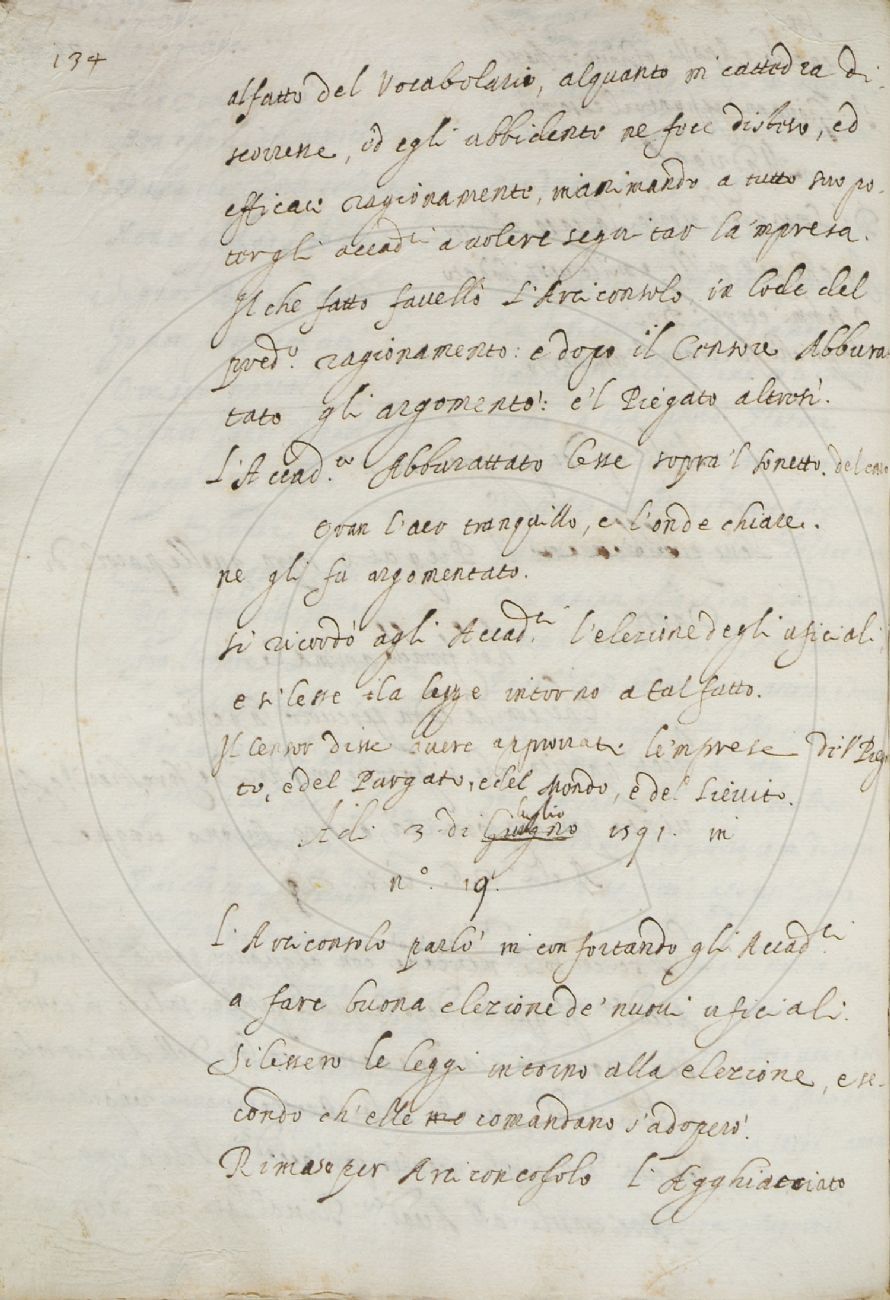 134
al fatto del Vocabolario, alquanto in cattedra di-
scorresse, ed egli ubbidente ne fece disteso, ed
efficace ragionamento, inanimando a tutto suo po-
ter gli accad.ci a volere seguitar la 'mpresa.
Il che fatto favellò l'Arciconsolo in lode del
pred.o ragionamento: e dopo il Censore Abbura
tato gli argomentò: e 'l Piegato altresì.
L'Accad.co Abburattato lesse sopra 'l sonetto. del casa
Gran l'aer tranquillo, e l'onde chiare.
ne gli fu argomentato.
si ricordò agli Accad.ci l'elezione degli uficiali
e si lesse la legge intorno a tal fatto.
Il Censor disse avere approvate le 'mprese di 'l Piega
to, e del Purgato, e del Mondo, e del Lievito.
A di 3 di Giugno luglio 1591. in
n.o 19.
L'Arciconsolo parlò inconfortando gli Accad.ci
a fare buona elezione de' nuovi uficiali.
Si lessero le leggi intorno alla elezione, e se-
condo ch' elle ne comandano s'adoperò.
Rimase per Arciconcosolo l'Agghiacciato